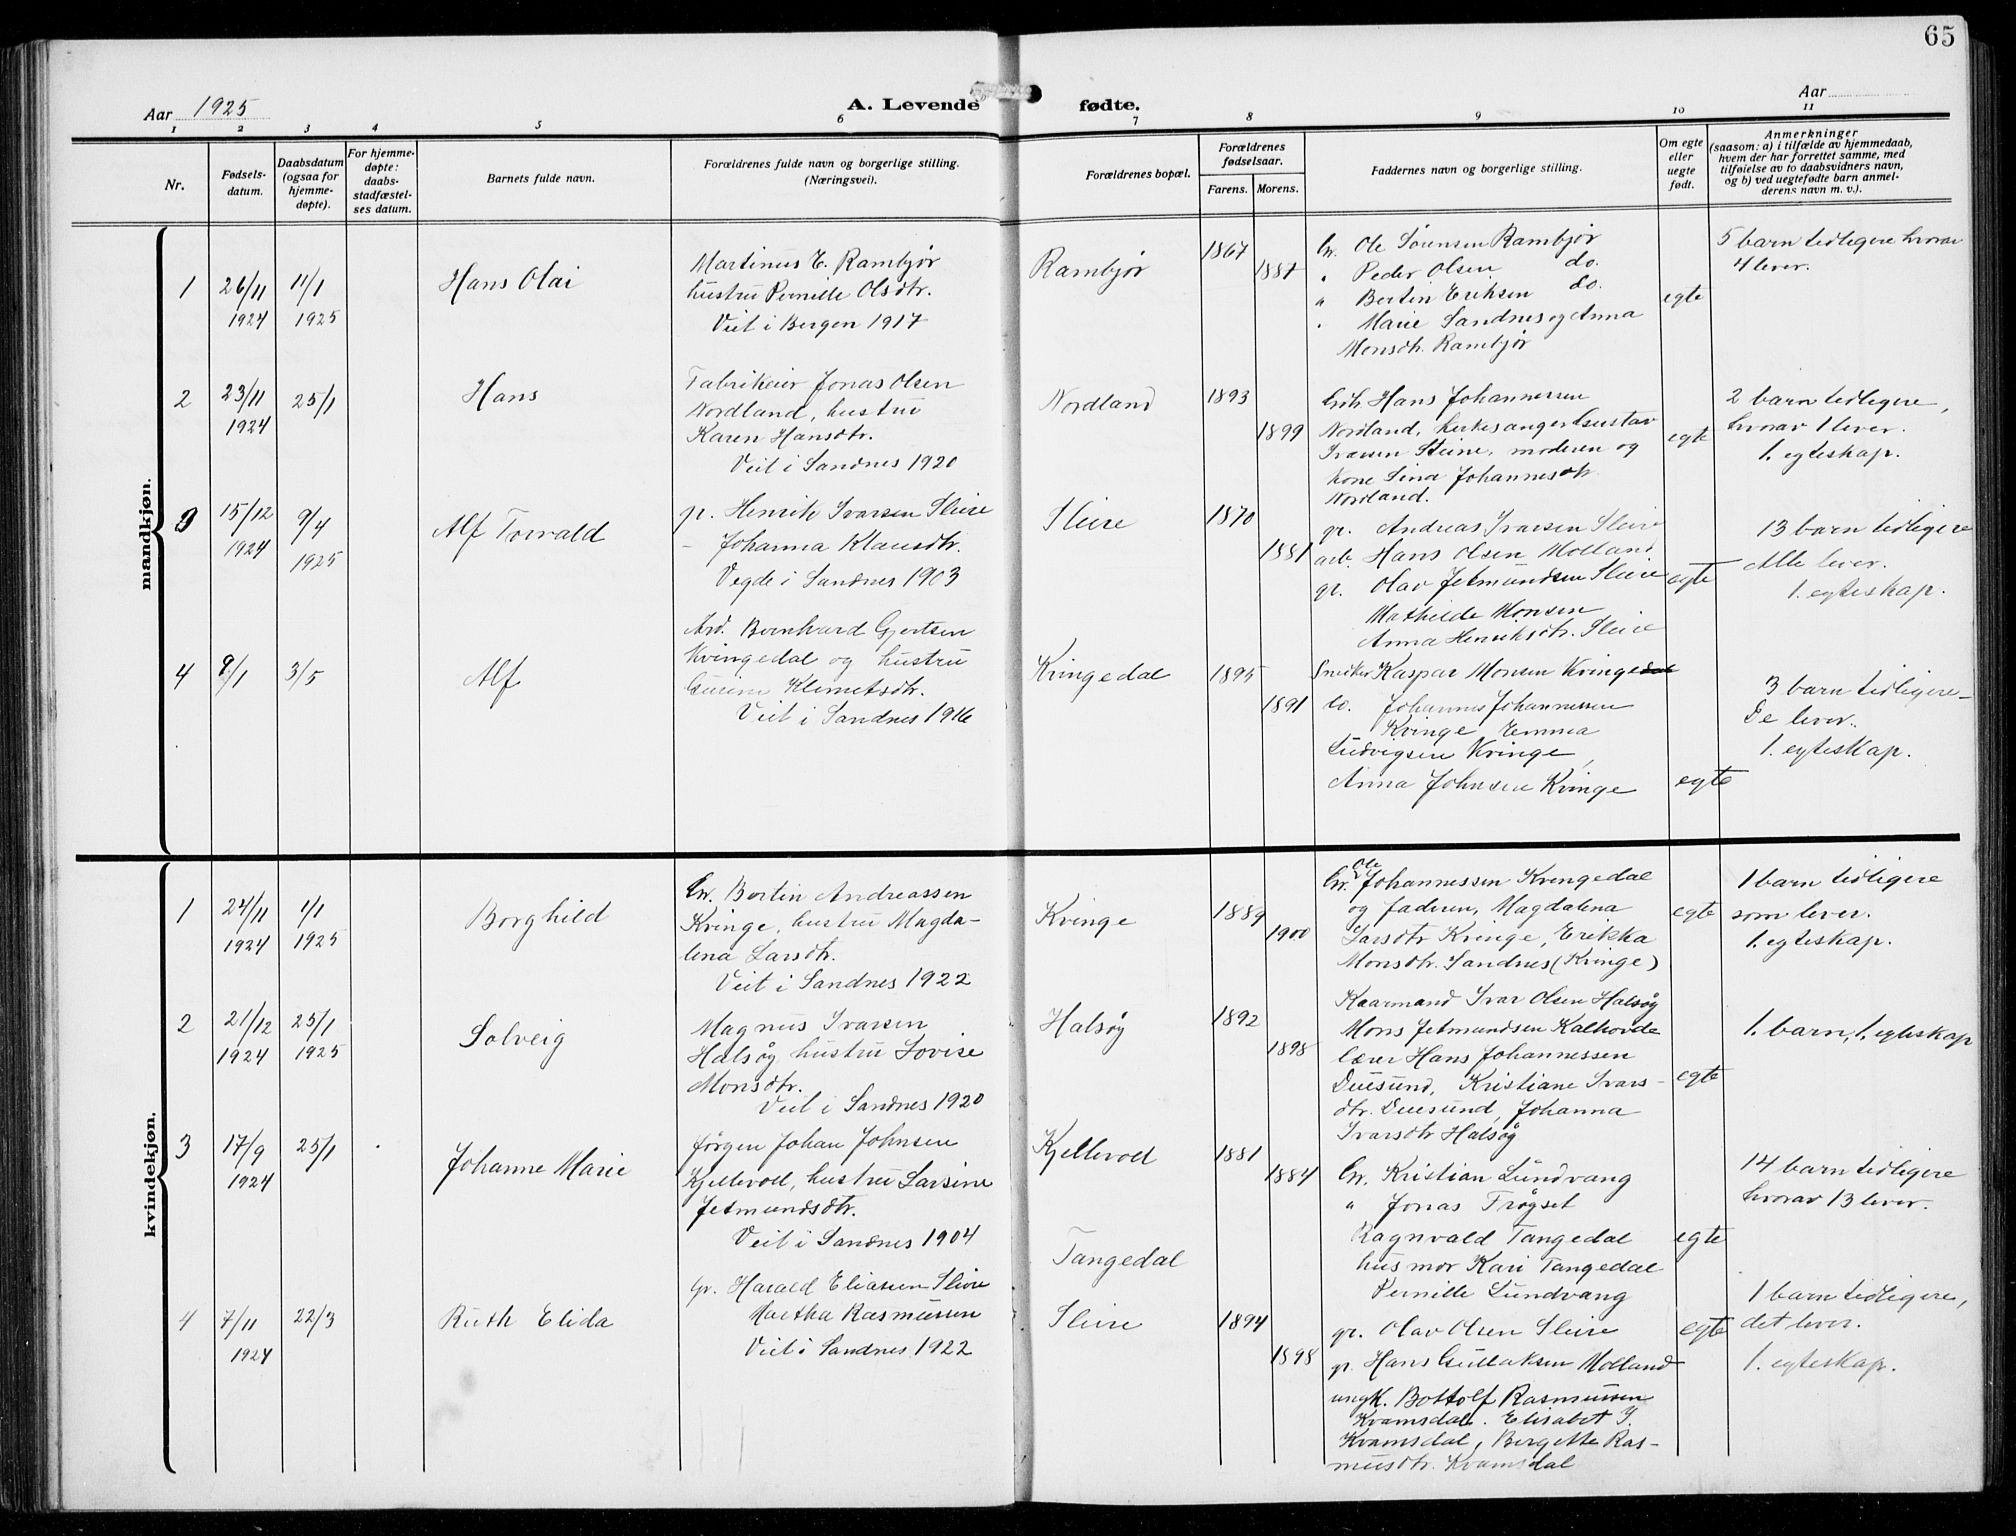 65
Aar 1925
A. Levende fødte.
Aar
1 2 3 4 5 6 7 8 9 10 11
Nr.
Fødsels-
datum.
Daabsdatum
(ogsaa for
hjemme-
døpte).
For hjemme-
døpte:
daabs-
stadfæstel-
ses datum.
Barnets fulde navn.
Forældrenes fulde navn og borgerlige stilling.
(Næringsvei).
Forældrenes bopæl.
Forældrenes
fødselsaar.
Farens. Morens.
Faddernes navn og borgerlige stilling.
Om egte
eller
uegte
født.
Anmerkninger
(saasom: a) i tilfælde av hjemmedaab,
hvem der har forrettet samme, med
tilføielse av to daabsvidners navn,
og b) ved uegtefødte barn anmel-
derens navn m. v.).
mandkjøn.
1
26/11
1924
11/1
1925
Hans Olai
Martinus E. Rambjør
hustru Pernille Olsdtr.
Viet i Bergen 1917
Rambjør
1867
1887
Gr. Ole Sørensen Rambjør
" Peder Olsen do.
" Bertin Eriksen do.
" Marie Sandnes og Anna
Monsdtr. Rambjør
egte
5 barn tidligere hvorav
4 lever.
2
23/11
1924
25/1
Hans
Fabrikeier Jonas Olsen
Nordland, hustru
Karen Hansdtr.
Viet i Sandnes 1920
Nordland
1893
1899
Hans Johannessen
Nordland, kirkesanger Gustav
Ivarsen Steine, moderen og
kone Sina Johannesdtr.
Nordland.
egte
2 barn tidligere,
hvorav 1 lever.
1. egteskap.
3
15/12
1924
9/4
1925
Alf Torvald
gr. Henrik Ivarsen Sleire
- Johanna Klausdtr.
Vegde i Sandnes 1903
Sleire
1870
1881
gr. Andreas Ivarsen Sleire
arb. Hans Olsen Molland
gr. Olav Jetmundsen Sleire
Mathilde Monsen
Anna Henriksdtr. Sleire
egte
13 barn tidligere
Alle lever.
1. egteskap.
4
9/1
3/5
Alf
Arb. Bernhard Gjertsen
Kvingedal og hustru
Gurine Klemetsdtr.
Viet i Sandnes 1916
Kvingedal
1895
1891
Snekker Kaspar Monsen Kvingedal
do. Johannes Johannessen
Kvinge Emma
Ludvigsen Kvinge,
Anna Johnsen Kvinge
egte
3 barn tidligere-
De lever.
1. egteskap.
kvindekjøn.
1
24/11
1924
1/1
1925
Borghild
Gr. Bertin Andreassen
Kvinge, hustru Magda-
lena Larsdtr.
Viet i Sandnes 1922
Kvinge
1889
1900
Gr. Ole Johannessen Kvingedal
og faderen, Magdalena
Larsdtr Kvinge, Erikka
Monsdtr. Sandnes (Kvinge)
egte
1 barn tidligere
som lever.
1. egteskap.
2
21/12
1924
25/1
1925
Solveig
Magnus Ivarsen
Halsøg, hustru Lovise
Monsdtr.
Viet i Sandnes 1920
Halsøg
1892
1898
Kaarmand Ivar Olsen Halsøg
Mons Jetmundsen Kalhovde
lærer Hans Johannessen
Duesund, Kristiane Ivars-
dtr. Duesund, Johanna
Ivarsdtr Halsøg
egte
1. barn, 1. egteskap
3
17/9
1924
25/1
Johanne Marie
Jørgen Johan Johnsen
Kjellevold, hustru Larsine
Jetmundsdtr.
Viet i Sandnes 1904
Kjellevold
Tangedal
1881
1884
Gr. Kristian Lundvang
" Jonas Trøgset
Ragnvald Tangedal
husmor Kari Tangedal
Pernille Lundvang
egte
14 barn tidligere
hvorav 13 lever.
4
7/11
1924
22/3
Ruth Elida
Gr. Harald Eliassen Sleire
Martha Rasmussen
Viet i Sandnes 1922
Sleire
1894
1898
gr. Olav Olsen Sleire
gr. Hans Gullaksen Molland
ungk. Bottolf Rasmussen
Kvamsdal. Elisabet I.
Kvamsdal, Bergette Ras-
musdtr. Kvamsdal
egte
1 barn tidligere,
det lever.
1. egteskap.